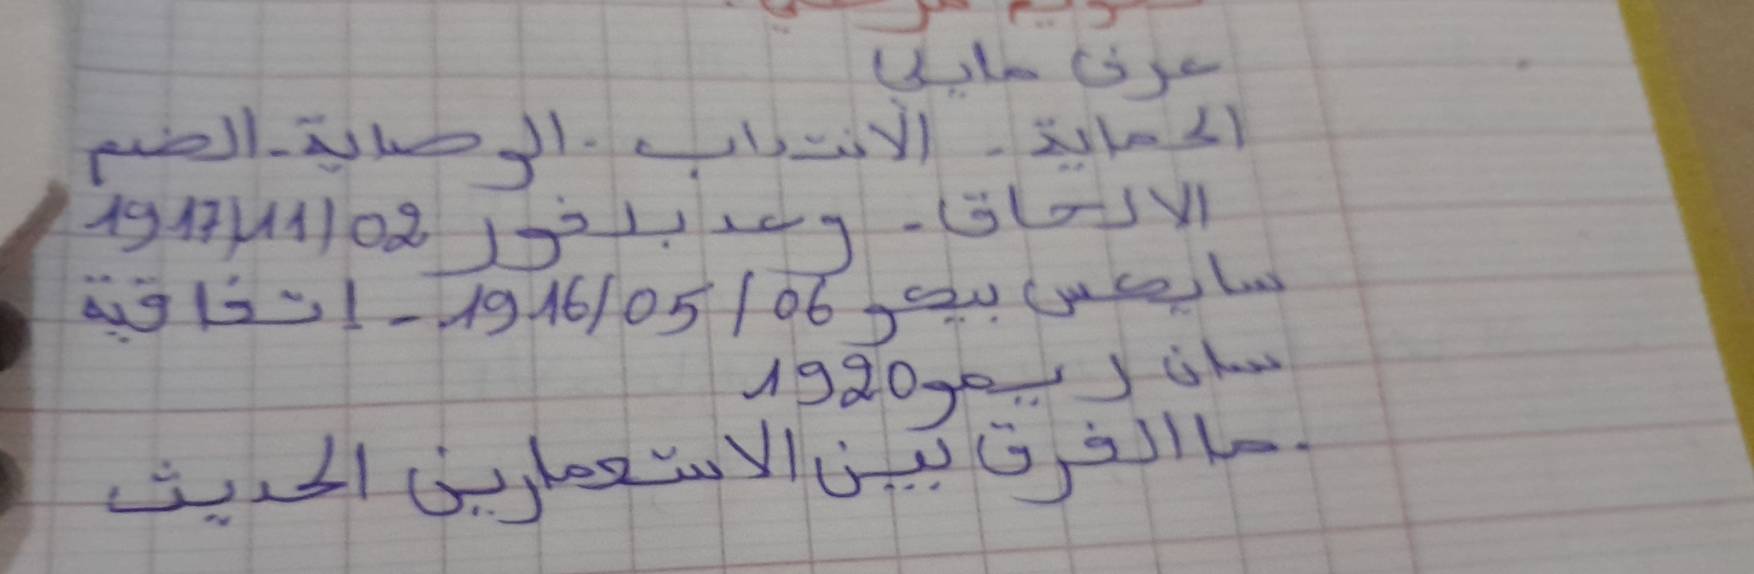 عرف مايلي
الحماية - الانتداب - الوصاية - الضم
الالحاق - وعد بلفور 02/11/1917
سايكس بيكو 06/05/1916 - اتفاقية
سان ريمو 1920
. ما الفرق بين الاستعمارين الحديث